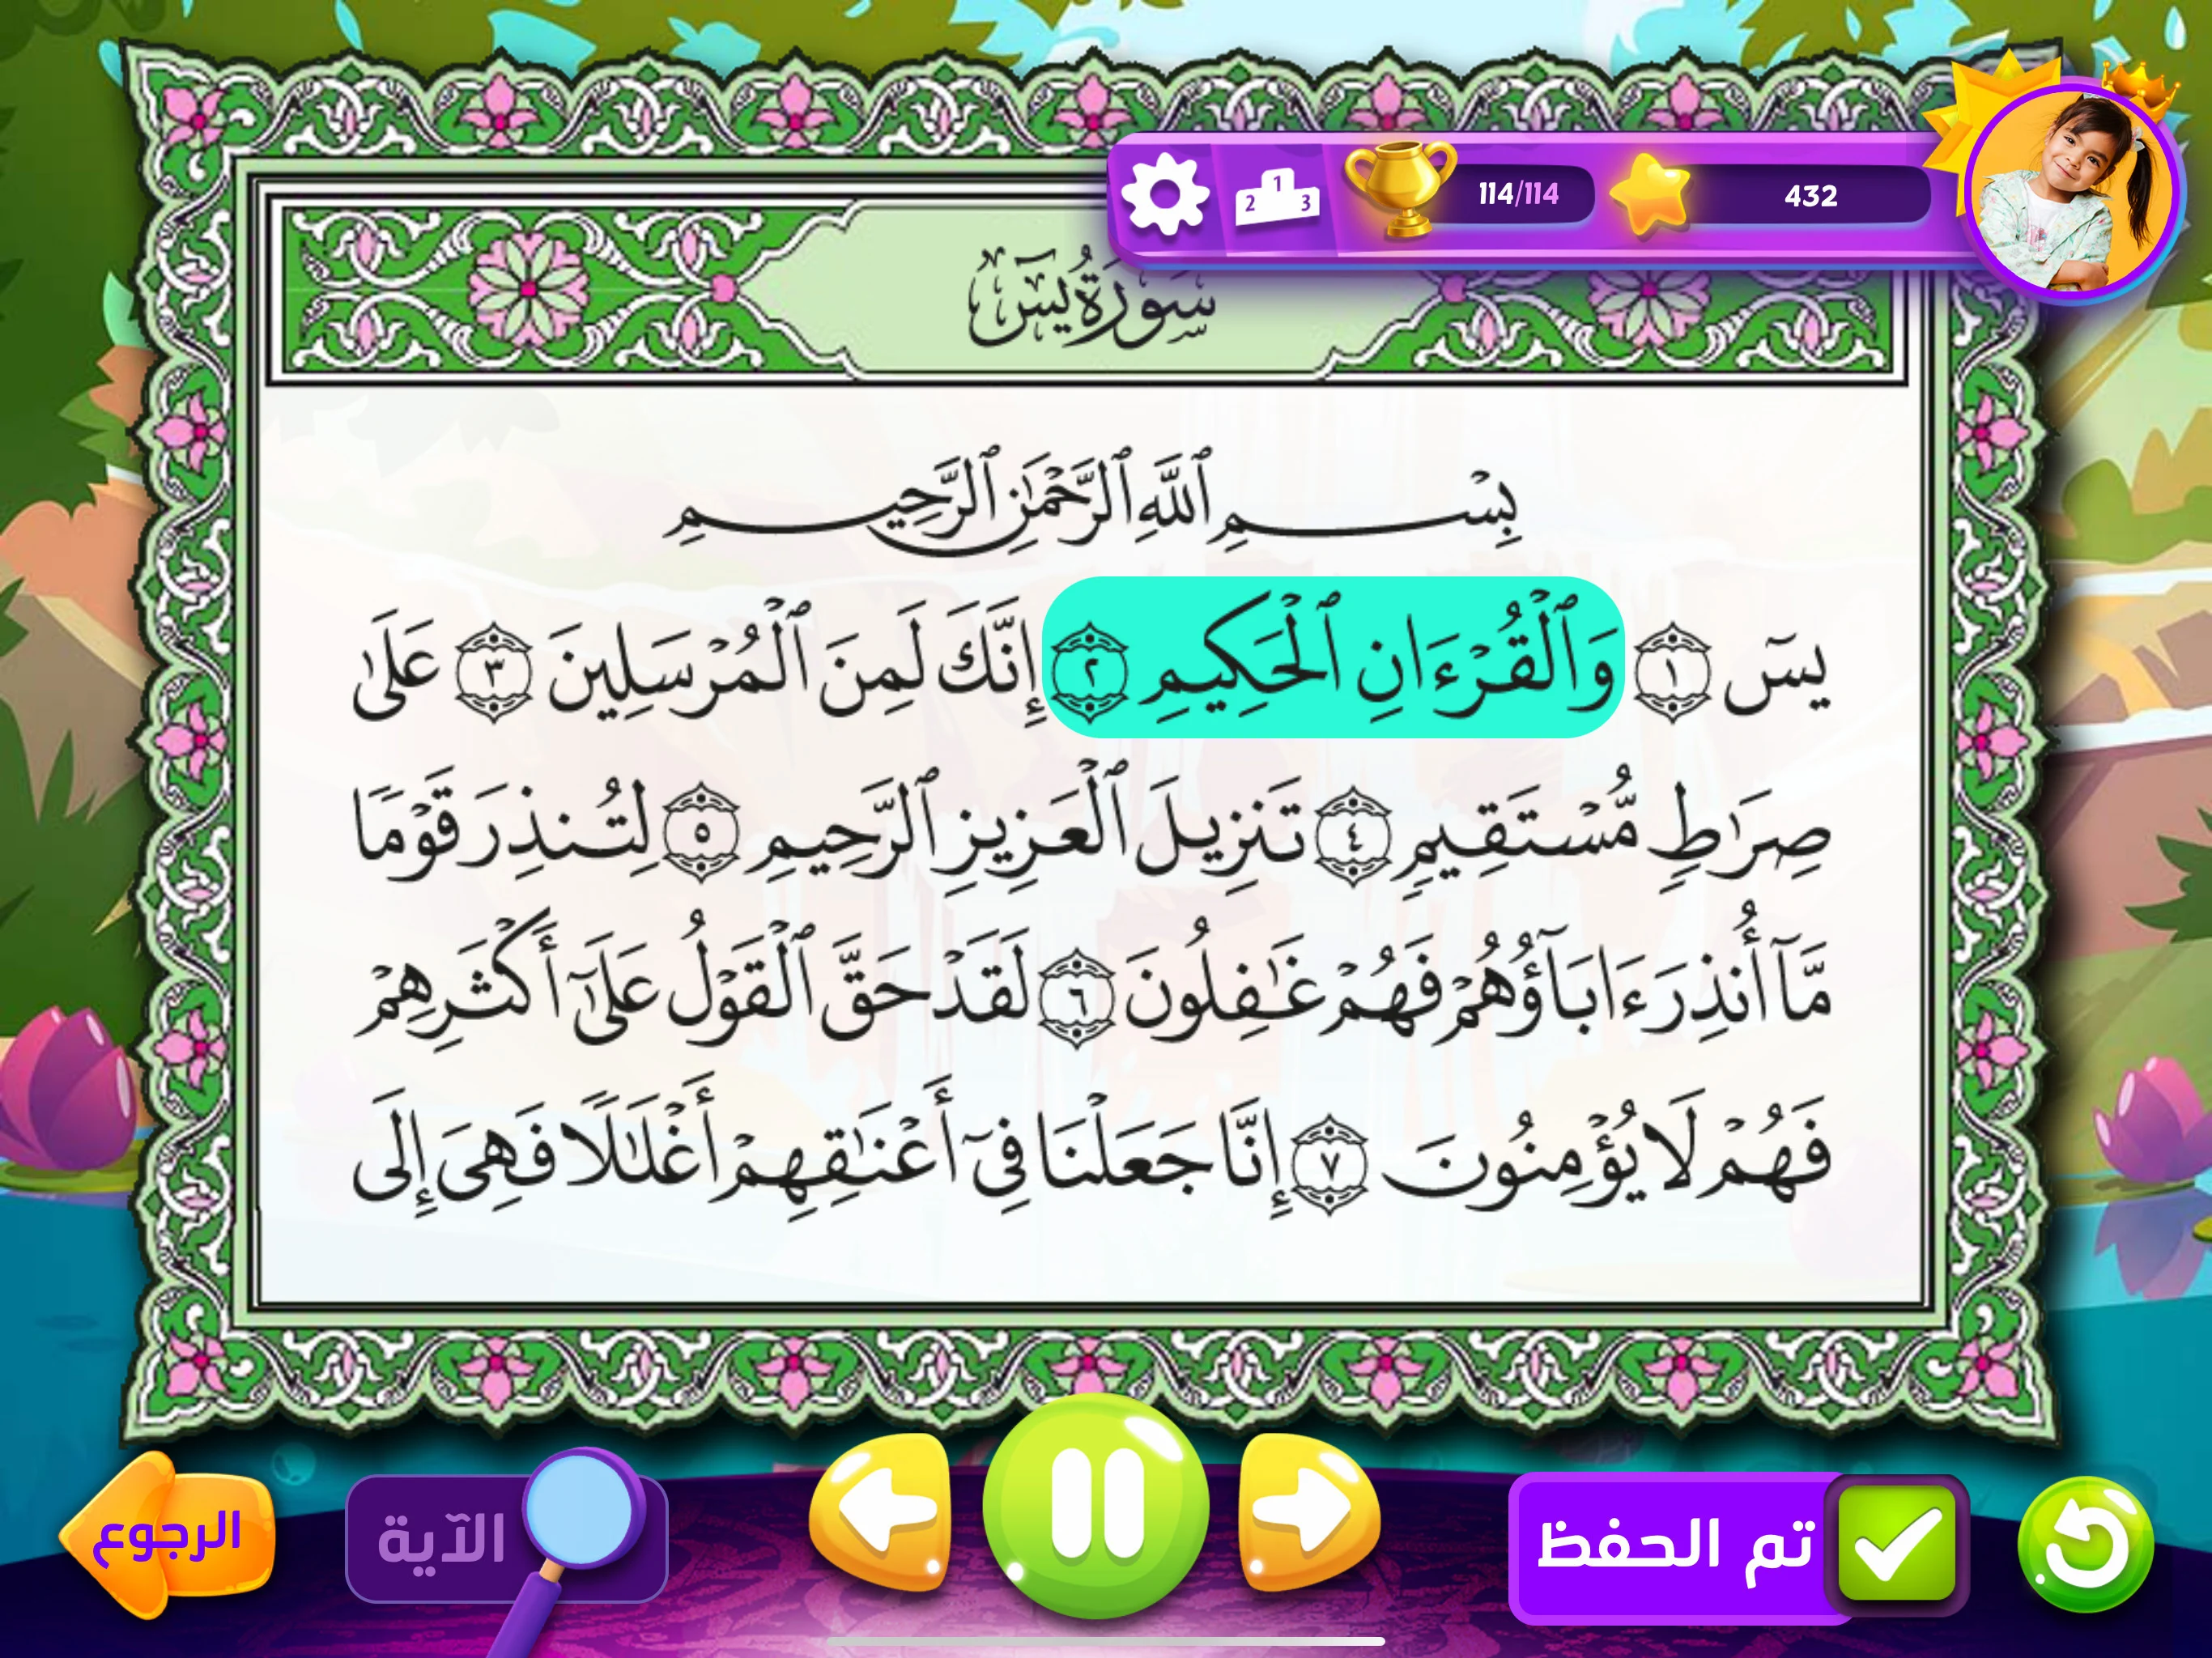 114/114
432
1
2
3
سُورَةُ يسٓ
بِسۡمِ ٱللَّهِ ٱلرَّحۡمَٰنِ ٱلرَّحِيمِ
يسٓ ١ وَٱلۡقُرۡءَانِ ٱلۡحَكِيمِ ٢ إِنَّكَ لَمِنَ ٱلۡمُرۡسَلِينَ ٣ عَلَىٰ
صِرَٰطٖ مُّسۡتَقِيمٖ ٤ تَنزِيلَ ٱلۡعَزِيزِ ٱلرَّحِيمِ ٥ لِتُنذِرَ قَوۡمٗا
مَّآ أُنذِرَ ءَابَآؤُهُمۡ فَهُمۡ غَٰفِلُونَ ٦ لَقَدۡ حَقَّ ٱلۡقَوۡلُ عَلَىٰٓ أَكۡثَرِهِمۡ
فَهُمۡ لَا يُؤۡمِنُونَ ٧ إِنَّا جَعَلۡنَا فِيٓ أَعۡنَٰقِهِمۡ أَغۡلَٰلٗا فَهِيَ إِلَى
تم الحفظ
الآية
الرجوع